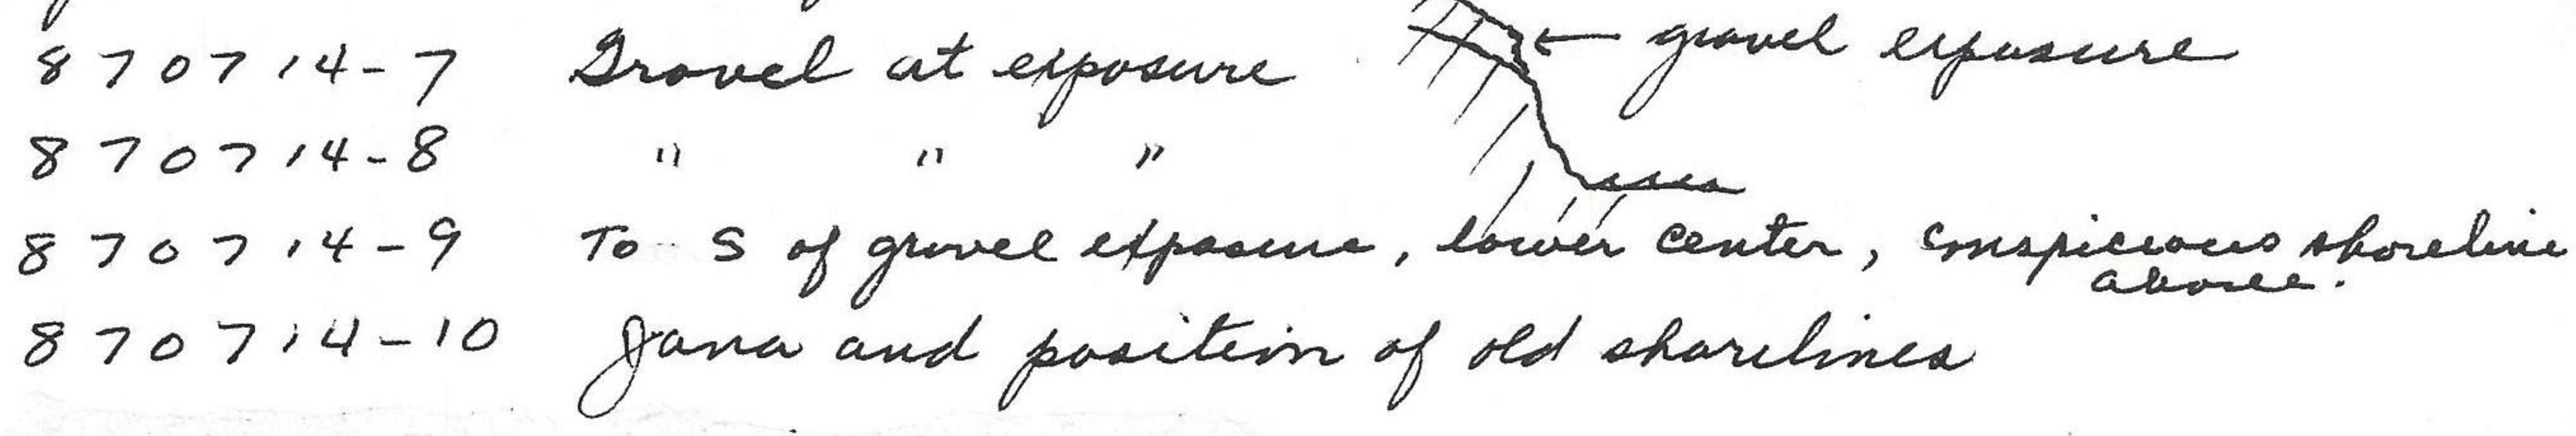 870714-7 Gravel at exposure ← gravel exposure
870714-8 " " "
870714-9 To S of gravel exposure, lower center, conspicuous shoreline
above.
870714-10 Jana and position of old shorelines